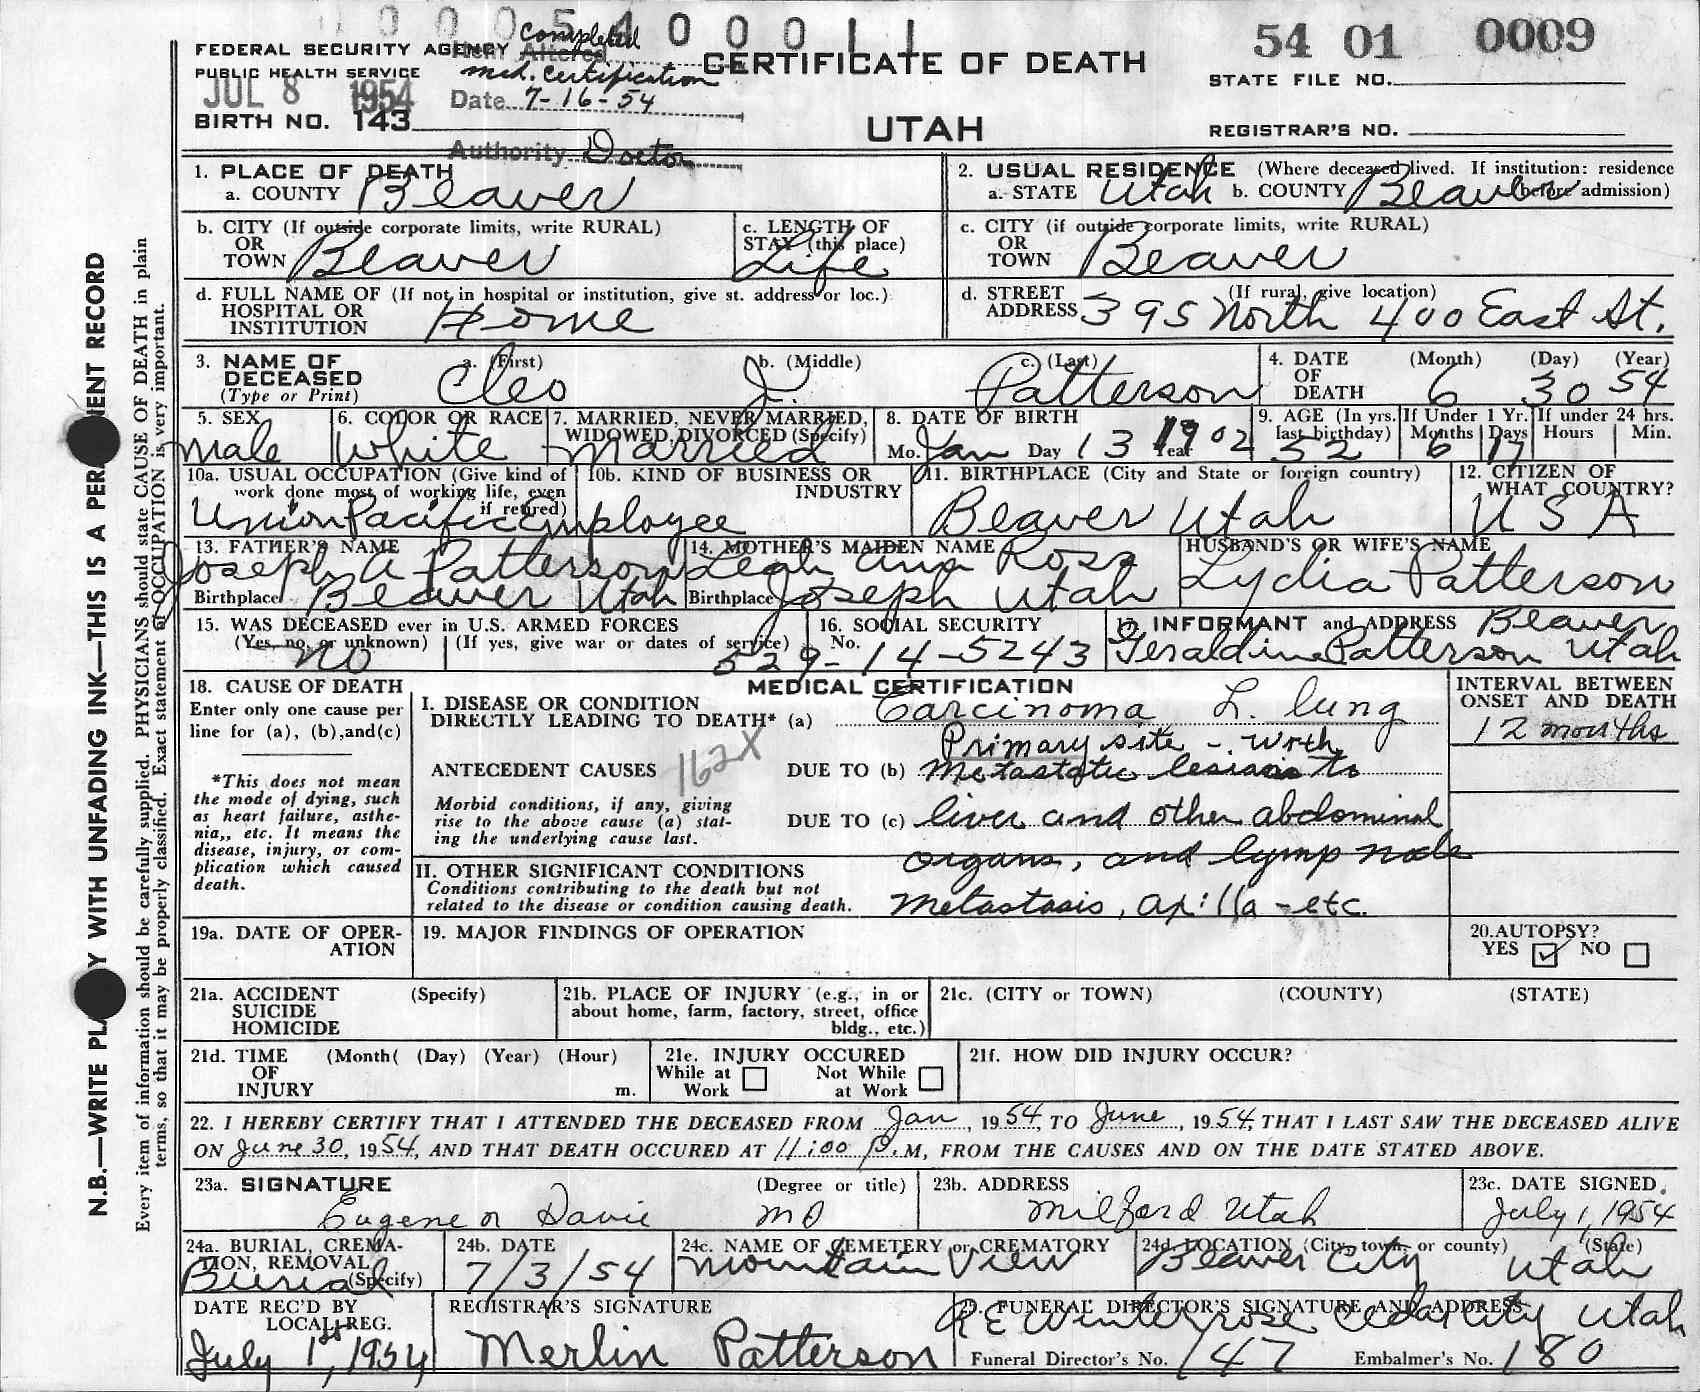 0 0 0 5 4 0 0 0 1 1
54 01 0009
FEDERAL SECURITY AGENCY
Item Altered Completed
med. Certification
CERTIFICATE OF DEATH
STATE FILE NO.
PUBLIC HEALTH SERVICE
JUL 8 1954
Date 7-16-54
BIRTH NO. 143
UTAH
REGISTRAR'S NO.
Authority Doctor
1. PLACE OF DEATH
a. COUNTY Beaver
2. USUAL RESIDENCE (Where deceased lived. If institution: residence
a. STATE Utah b. COUNTY Beaver before admission)
b. CITY (If outside corporate limits, write RURAL)
OR
TOWN Beaver
c. LENGTH OF
STAY (this place)
Life
c. CITY (if outside corporate limits, write RURAL)
OR
TOWN Beaver
d. FULL NAME OF (If not in hospital or institution, give st. address or loc.)
HOSPITAL OR
INSTITUTION Home
d. STREET (If rural, give location)
ADDRESS 395 North 400 East St.
3. NAME OF
DECEASED
(Type or Print)
a. (First) b. (Middle) c. (Last)
Cleo J. Patterson
4. DATE (Month) (Day) (Year)
OF
DEATH 6 30 54
5. SEX
Male
6. COLOR OR RACE
White
7. MARRIED, NEVER MARRIED,
WIDOWED, DIVORCED (Specify)
Married
8. DATE OF BIRTH
Mo. Jan Day 13 Year 1902
9. AGE (In yrs.
last birthday)
52
If Under 1 Yr.
Months Days
6 17
If under 24 hrs.
Hours Min.
10a. USUAL OCCUPATION (Give kind of
work done most of working life, even
if retired)
10b. KIND OF BUSINESS OR
INDUSTRY
Union Pacific Employee
11. BIRTHPLACE (City and State or foreign country)
Beaver Utah
12. CITIZEN OF
WHAT COUNTRY?
U S A
13. FATHER'S NAME
Joseph A Patterson
Birthplace Beaver Utah
14. MOTHER'S MAIDEN NAME
Leah Ann Ross
Birthplace Joseph Utah
HUSBAND'S OR WIFE'S NAME
Lydia Patterson
15. WAS DECEASED ever in U.S. ARMED FORCES
(Yes, no, or unknown) (If yes, give war or dates of service)
no
16. SOCIAL SECURITY
No.
529-14-5243
17. INFORMANT and ADDRESS Beaver
Geraldine Patterson Utah
18. CAUSE OF DEATH
Enter only one cause per
line for (a), (b), and(c)
*This does not mean
the mode of dying, such
as heart failure, asthe-
nia,, etc. It means the
disease, injury, or com-
plication which caused
death.
MEDICAL CERTIFICATION
I. DISEASE OR CONDITION
DIRECTLY LEADING TO DEATH* (a) Carcinoma L. lung
Primary site - with
ANTECEDENT CAUSES 162X DUE TO (b) Metastatic lesions to
Morbid conditions, if any, giving
rise to the above cause (a) stat-
ing the underlying cause last.
DUE TO (c) liver and other abdominal
organs, and lymp node
II. OTHER SIGNIFICANT CONDITIONS
Conditions contributing to the death but not
related to the disease or condition causing death.
Metastasis, axilla - etc.
INTERVAL BETWEEN
ONSET AND DEATH
12 months
19a. DATE OF OPER-
ATION
19. MAJOR FINDINGS OF OPERATION
20. AUTOPSY?
YES ☑ NO ☐
21a. ACCIDENT (Specify)
SUICIDE
HOMICIDE
21b. PLACE OF INJURY (e.g., in or
about home, farm, factory, street, office
bldg., etc.)
21c. (CITY or TOWN) (COUNTY) (STATE)
21d. TIME (Month( (Day) (Year) (Hour)
OF
INJURY m.
21e. INJURY OCCURED
While at Not While
Work at Work
21f. HOW DID INJURY OCCUR?
22. I HEREBY CERTIFY THAT I ATTENDED THE DECEASED FROM Jan, 1954, TO June, 1954, THAT I LAST SAW THE DECEASED ALIVE
ON June 30, 1954, AND THAT DEATH OCCURED AT 11:00 P.M, FROM THE CAUSES AND ON THE DATE STATED ABOVE.
23a. SIGNATURE (Degree or title)
Eugene Davie MD
23b. ADDRESS
Milford Utah
23c. DATE SIGNED.
July 1, 1954
24a. BURIAL, CREMA-
TION, REMOVAL
(Specify)
Burial
24b. DATE
7/3/54
24c. NAME OF CEMETERY or CREMATORY
Mountain View
24d. LOCATION (City, town, or county) (State)
Beaver City Utah
DATE REC'D BY
LOCAL REG.
July 1st, 1954
REGISTRAR'S SIGNATURE
Merlin Patterson
FUNERAL DIRECTOR'S SIGNATURE AND ADDRESS
R E Winterrose Cedar City Utah
Funeral Director's No. 147 Embalmer's No. 180
N.B.—WRITE PLA Y WITH UNFADING INK—THIS IS A PERMA ENT RECORD
Every item of information should be carefully supplied. PHYSICIANS should state CAUSE OF DEATH in plain
terms, so that it may be properly classified. Exact statement of OCCUPATION is very important.